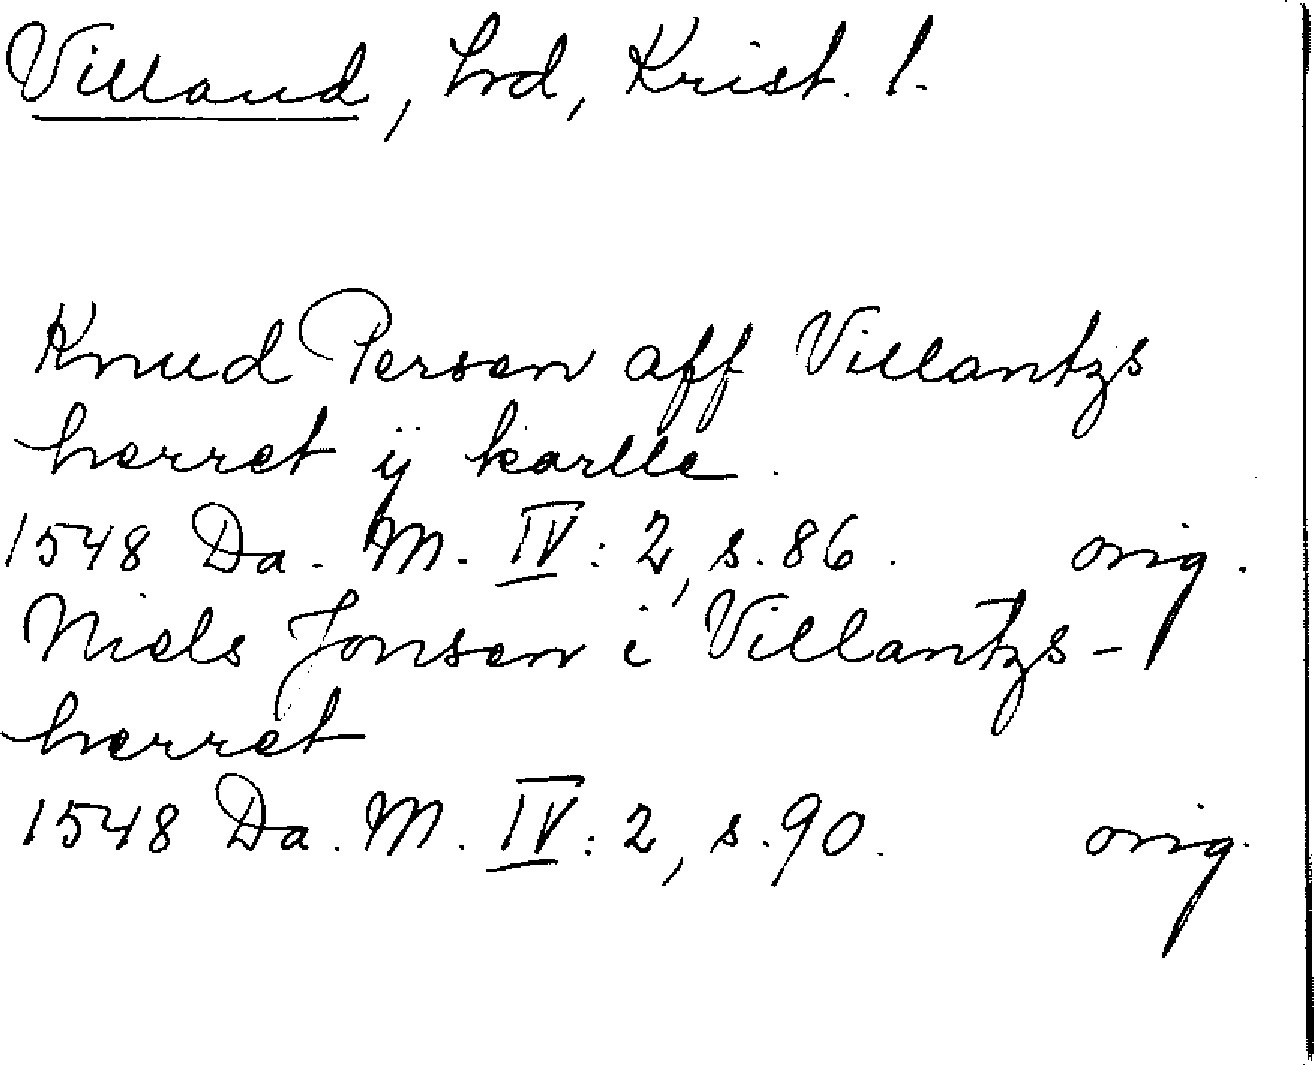 Villand, hrd, Krist. l.
Knud Persen aff Villantzs
herret ij karlle.
1548 Da. M. IV: 2, s. 86. orig.
Niels Jonsen i Villantzs-
herret
1548 Da. M. IV: 2, s. 90. orig.